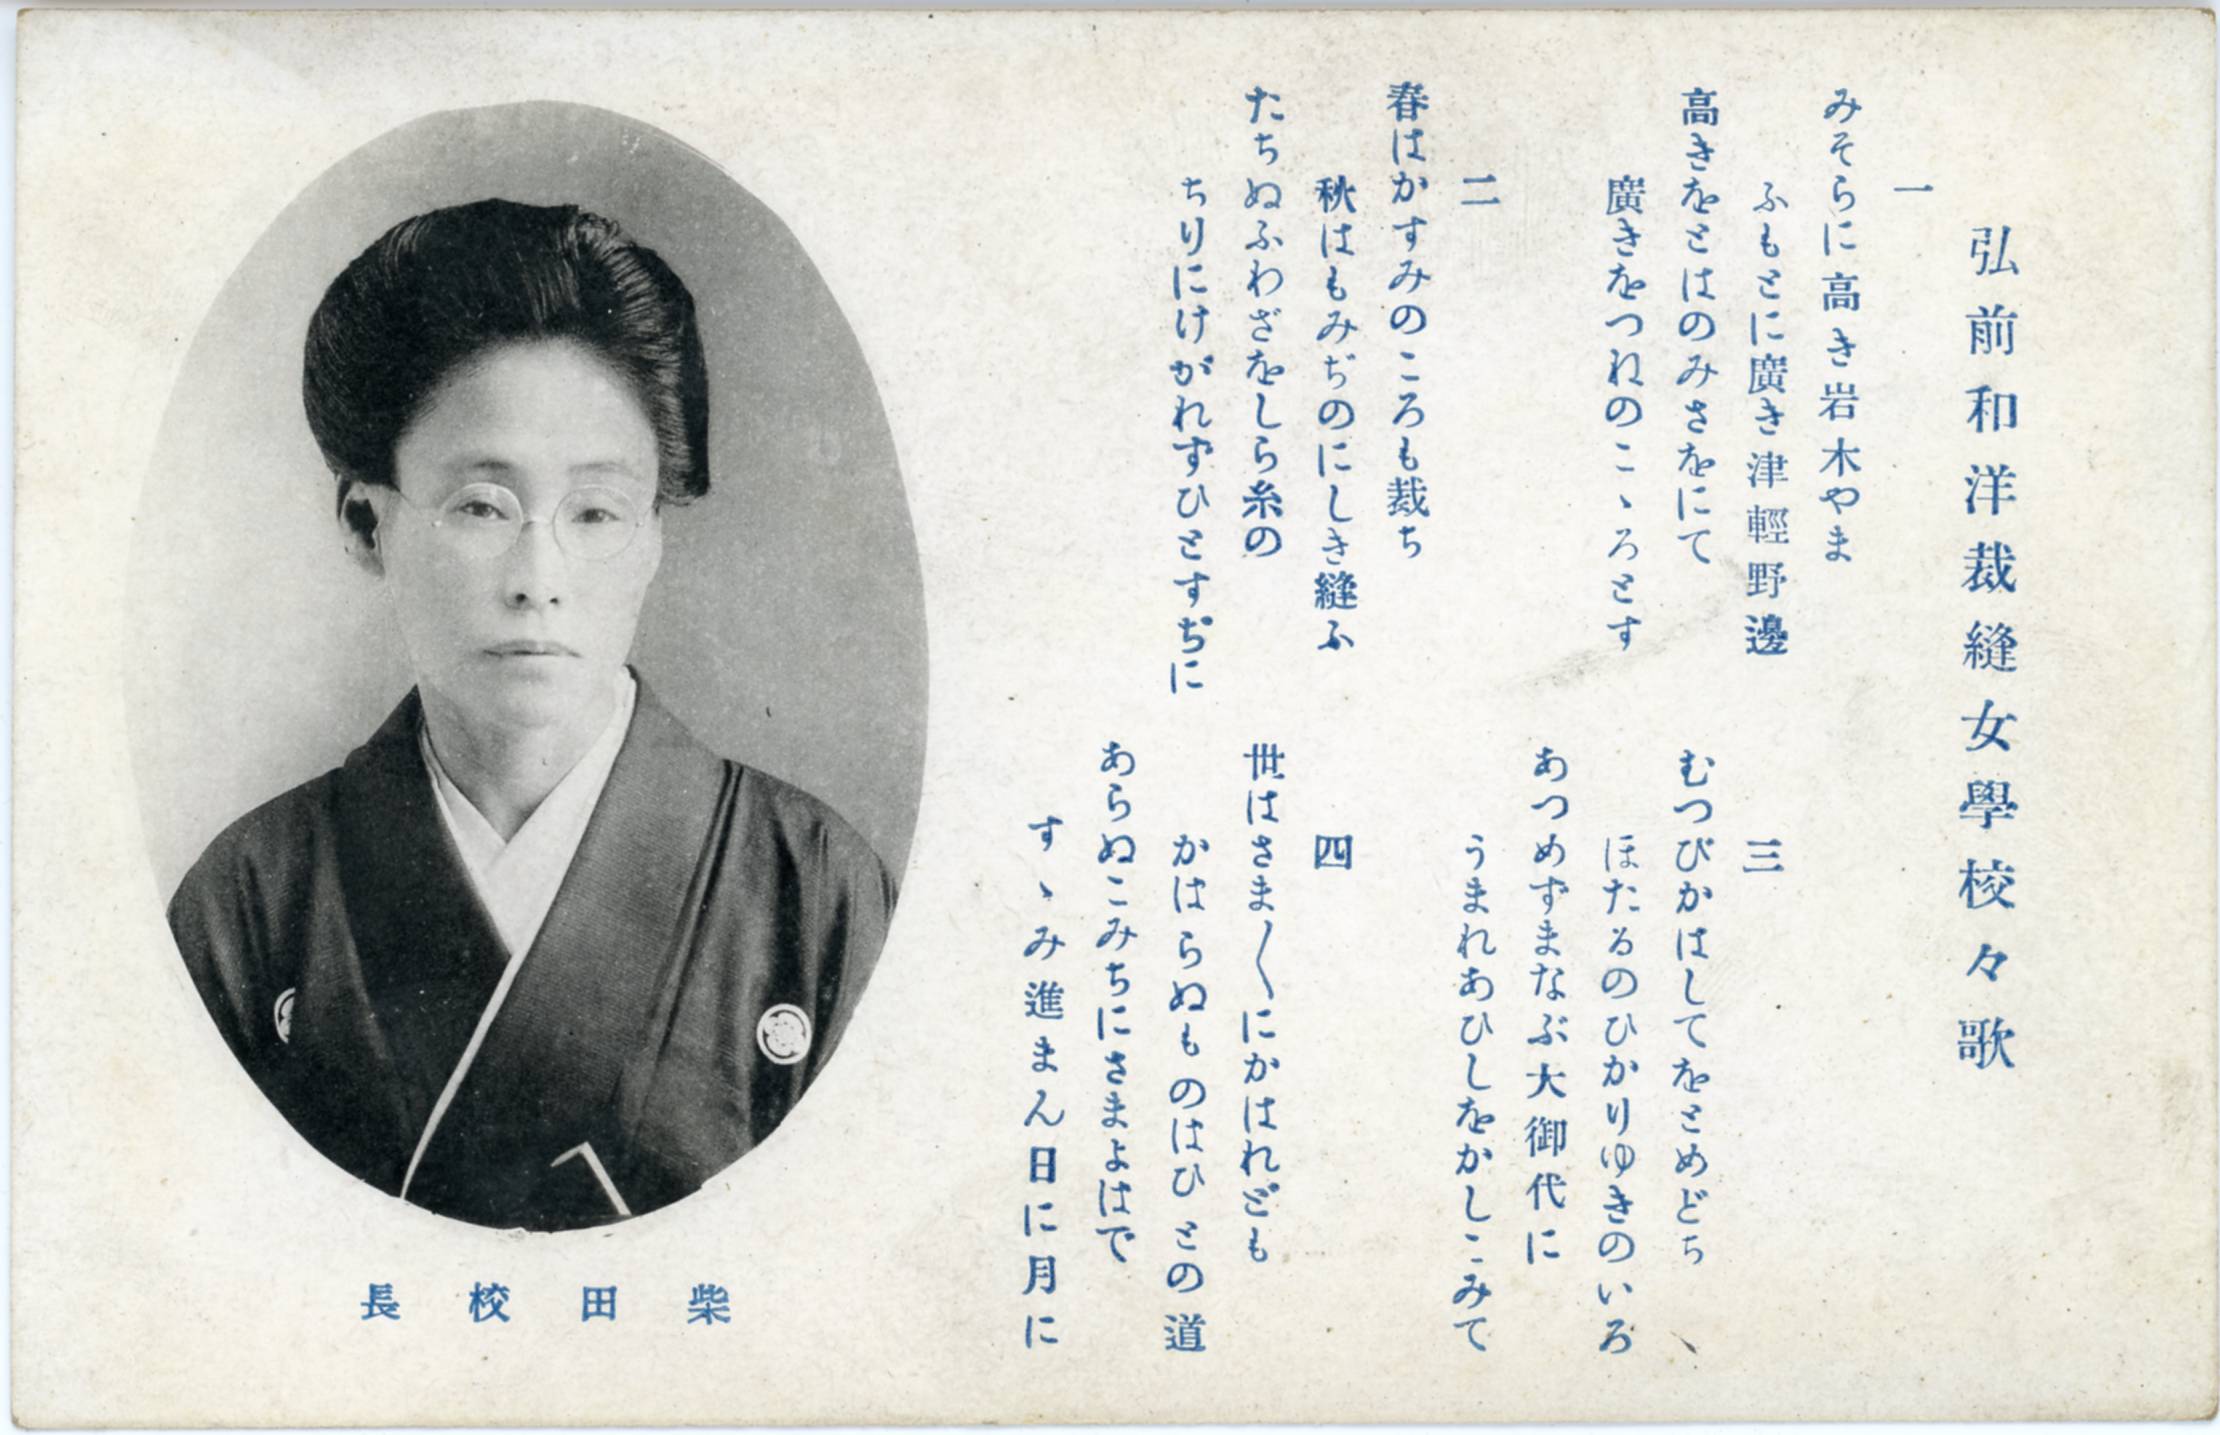 弘前和洋裁縫女學校々歌
一
みそらに高き岩木やま
ふもとに廣き津輕野邊
高きをとはのみさをにて
廣きをつねのこゝろとす
二
春はかすみのころも裁ち
秋はもみぢのにしき縫ふ
たちぬふわざをしら糸の
ちりにけがれずひとすぢに
三
むつびかはしてをとめどち
ほたるのひかりゆきのいろ
あつめずまなぶ大御代に
うまれあひしをかしこみて
四
世はさま〲にかはれども
かはらぬものはひとの道
あらぬこみちにさまよはで
すゝみ進まん日に月に
柴田校長